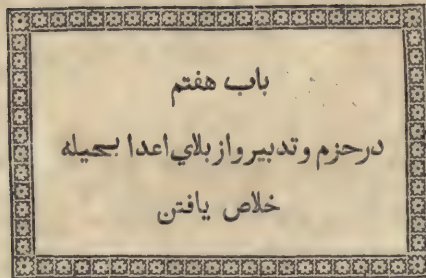 باب هفتم
درحزم وتدبیر واز بلاي اعدا بحیله
خلاص یافتن